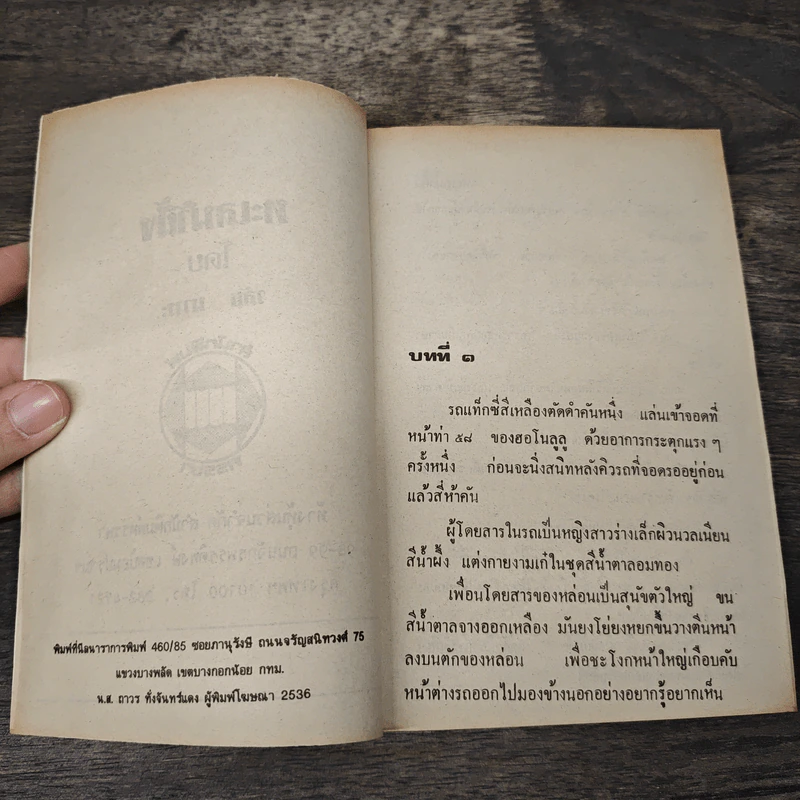 พิมพ์ที่นีลนาราการพิมพ์ 460/85 ซอยภานุรังษี ถนนจรัญสนิทวงศ์ 75
แขวงบางพลัด เขตบางกอกน้อย กทม.
น.ส. ถาวร ทั่งจันทร์แดง ผู้พิมพ์โฆษณา 2536
บทที่ ๑
รถแท็กซี่สีเหลืองตัดดำคันหนึ่ง แล่นเข้าจอดที่
หน้าท่า ๕๘ ของฮอโนลูลู ด้วยอาการกระตุกแรง ๆ
ครั้งหนึ่ง ก่อนจะนิ่งสนิทหลังคิวรถที่จอดรออยู่ก่อน
แล้วสี่ห้าคัน
ผู้โดยสารในรถเป็นหญิงสาวร่างเล็กผิวนวลเนียน
สีน้ำผึ้ง แต่งกายงามเก๋ในชุดสีน้ำตาลอมทอง
เพื่อนโดยสารของหล่อนเป็นสุนัขตัวใหญ่ ขน
สีน้ำตาลจางออกเหลือง มันยงโย่ยงหยกขึ้นวางตีนหน้า
ลงบนตักของหล่อน เพื่อชะโงกหน้าใหญ่เกือบคับ
หน้าต่างรถออกไปมองข้างนอกอย่างอยากรู้อยากเห็น